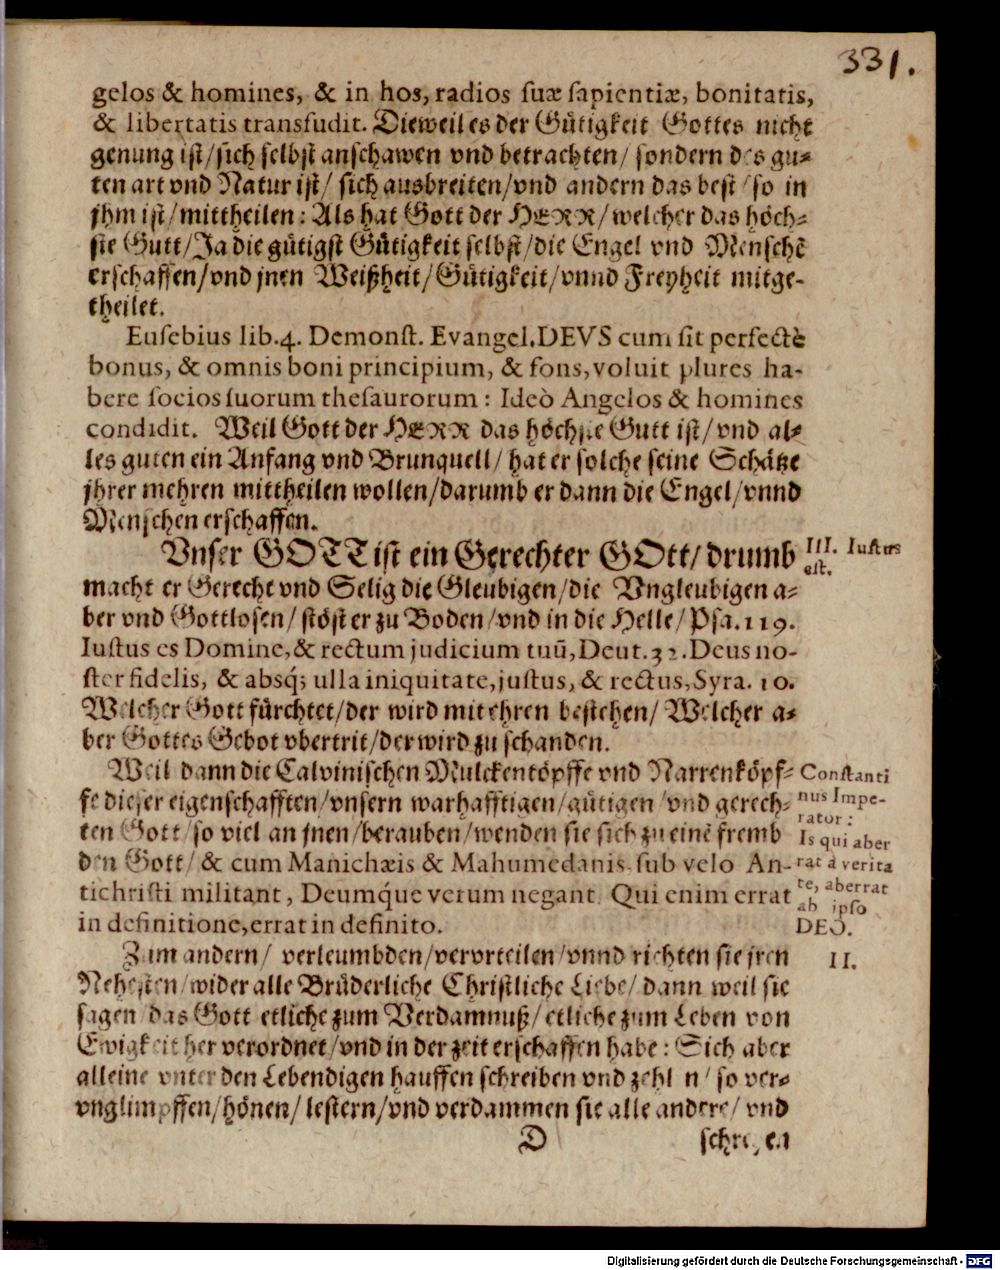 331.
gelos & homines, & in hos, radios suæ sapientiæ, bonitatis,
& libertatis transfudit. Dieweil es der Gütigkeit Gottes nicht
genung ist/sich selbst anschawen vnd betrachten/ sondern des gu-
ten art vnd Natur ist/ sich ausbreiten/vnd andern das best/so in
jhm ist/mittheilen: Als hat Gott der HERR/welcher das höch-
ste Gutt/Ja die gütigst Gütigkeit selbst/die Engel vnd Menschē
erschaffen/vnd jnen Weißheit/Gütigkeit/vnnd Freyheit mitge-
theilet.
Eusebius lib.4. Demonst. Evangel.DEVS cum sit perfectè
bonus, & omnis boni principium, & fons, voluit plures ha-
bere socios suorum thesaurorum: Ideò Angelos & homines
condidit. Weil Gott der HERR das höchste Gutt ist/vnd al-
les guten ein Anfang vnd Brunquell/hat er solche seine Schätze
jhrer mehren mittheilen wollen/darumb er dann die Engel/vnnd
Menschen erschaffen.
Vnser GOTT ist ein Gerechter GOtt/drumb
III. Iustus
est.
macht er Gerecht vnd Selig die Gleubigen/die Vngleubigen a-
ber vnd Gottlosen/stöst er zu Boden/vnd in die Helle/Psa.119.
Iustus es Domine,& rectum judicium tuũ,Deut.32.Deus no-
ster fidelis, & absq́; ulla iniquitate,justus, & rectus,Syra. 10.
Welcher Gott fürchtet/der wird mit ehren bestehen/ Welcher a-
ber Gottes Gebot vbertrit/der wird zu schanden.
Weil dann die Calvinischen Mulckentöpffe vnd Narrenköpf-
fe dieser eigenschafften/vnsern warhafftigen/gütigen/vnd gerech-
ten Gott/so viel an jnen/berauben/wenden sie sich zu einē fremb
den Gott/ & cum Manichæis & Mahumedanis sub velo An-
tichristi militant, Deumq́ue verum negant. Qui enim errat
in definitione,errat in definito.
Constanti
nus Impe-
rator:
Is qui aber
rat à verita
te, aberrat
ab ipso
DEO.
Zum andern/ verleumbden/vervrteilen/vnnd richten sie jren
II.
Nehesten/wider alle Brüderliche Christliche Liebe/dann weil sie
sagen/das Gott etliche zum Verdamnuß/etliche zum Leben von
Ewigkeit her verordnet/vnd in der zeit erschaffen habe: Sich aber
alleine vnter den Lebendigen hauffen schreiben vnd zehlen/so ver-
vnglimpffen/hönen/lestern/vnd verdammen sie alle andere/vnd
D
schreyen
Digitalisierung gefördert durch die Deutsche Forschungsgemeinschaft - DFG